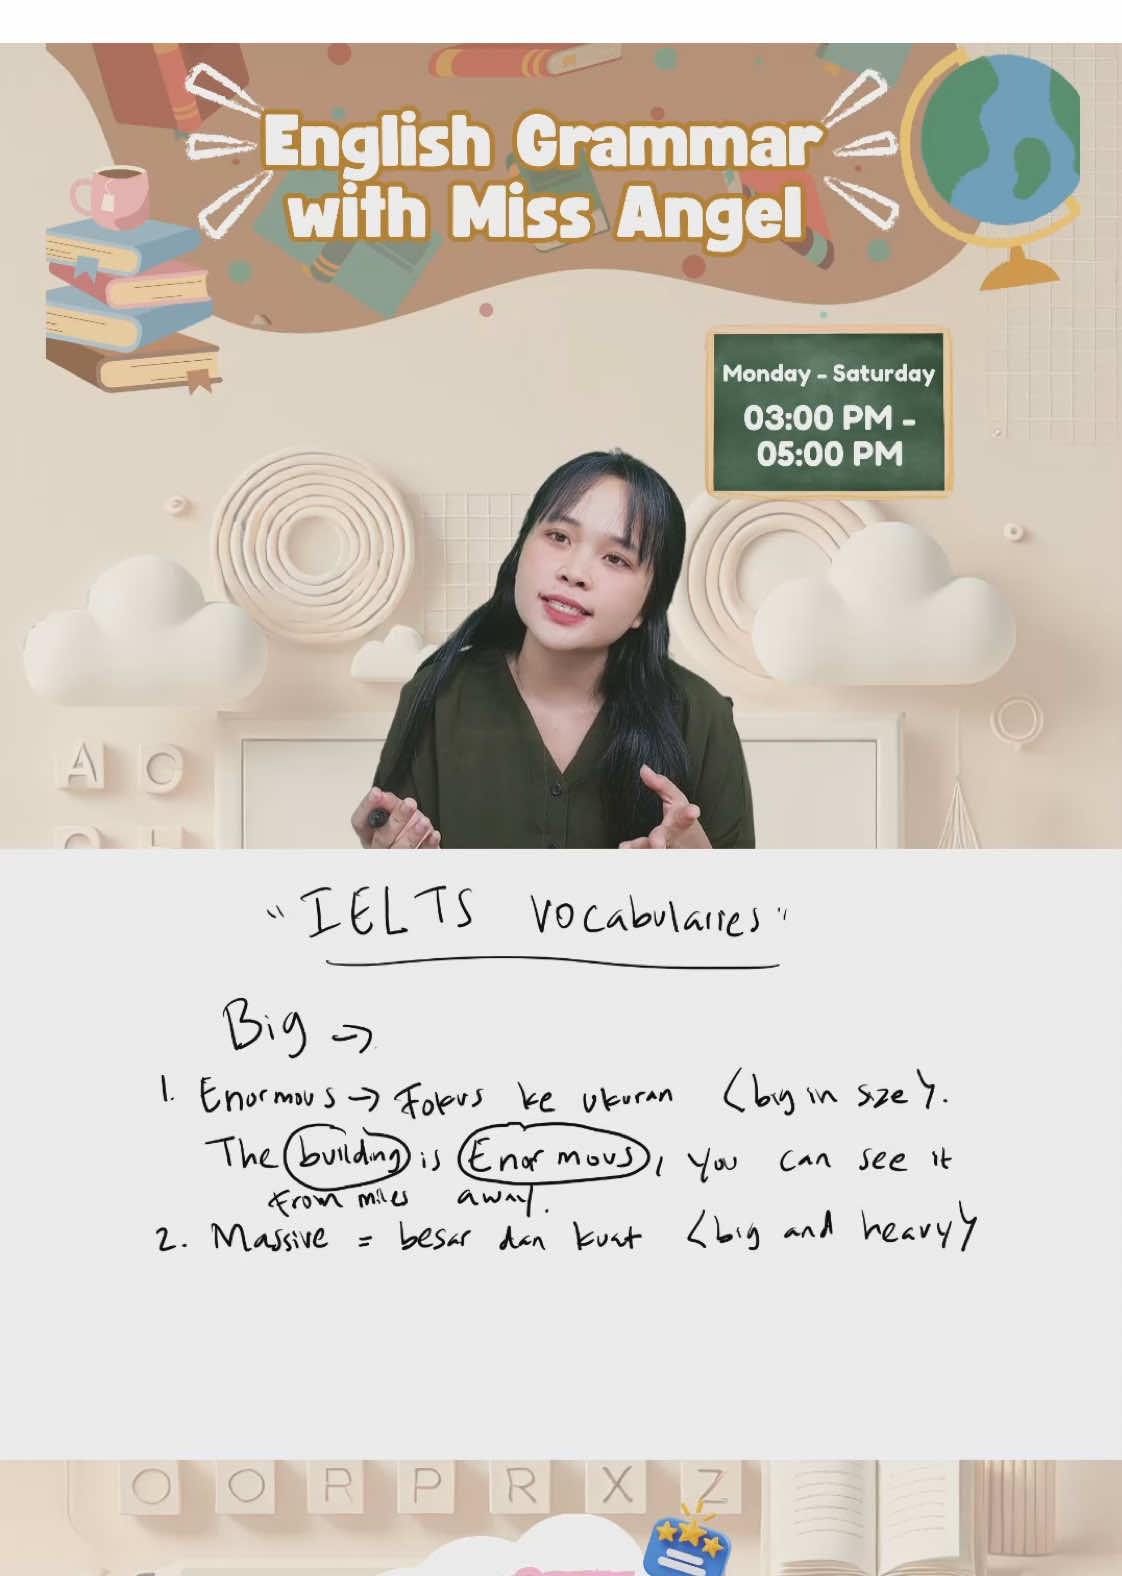 English Grammar
with Miss Angel
Monday - Saturday
03:00 PM -
05:00 PM
A O
"IELTS Vocabularies"
Big →
1. Enormous → Fokus ke ukuran (big in size).
The building is Enormous, you can see it
from miles away.
2. Massive = besar dan kuat (big and heavy)
O O R P R X Z